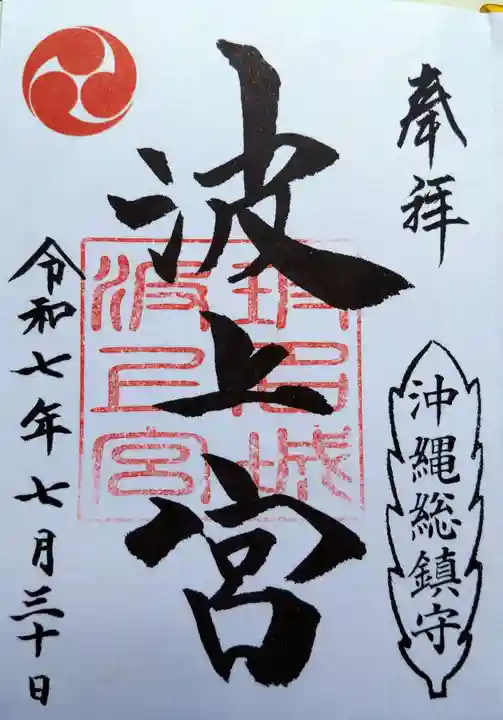 奉拝
沖縄総鎮守
波上宮
波上宮
令和七年七月三十日